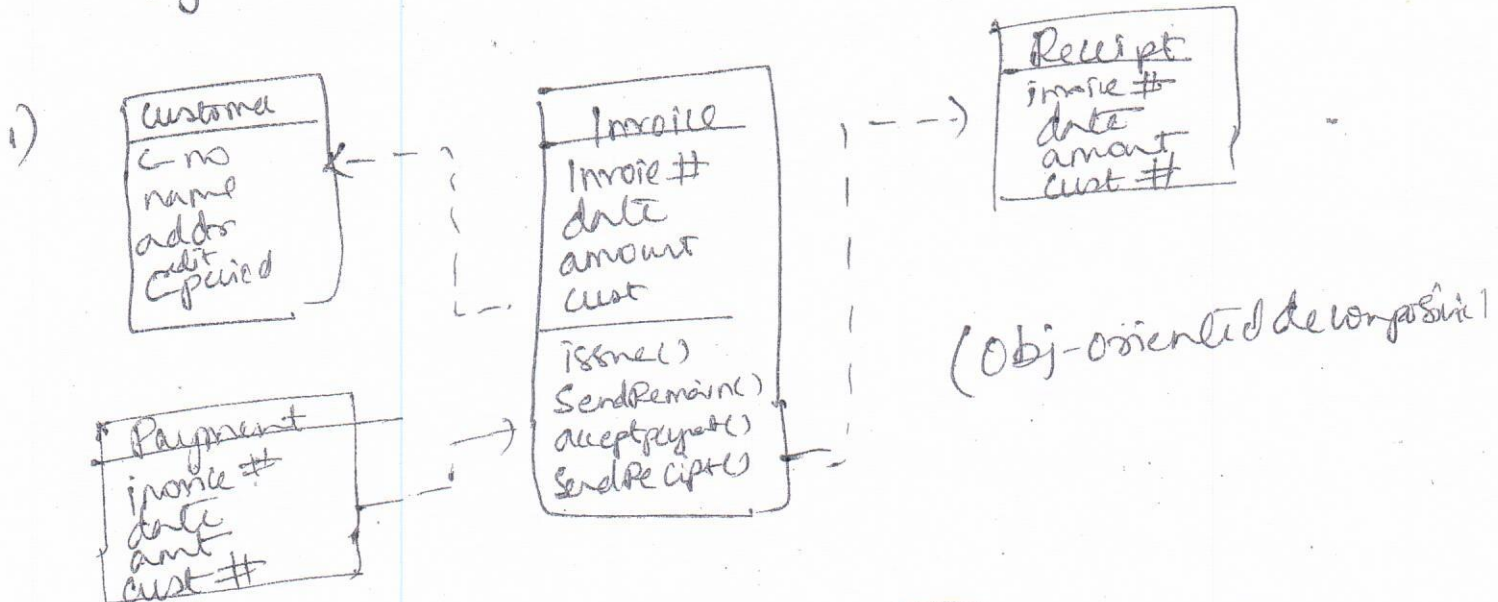 1)
Customer
C-no
name
addr
credit
period
Invoice
Invoie #
date
amount
cust
issue()
SendRemain()
acceptpaymt()
SendRecipt()
Receipt
invoie #
date
amount
cust #
Payment
invoice #
date
amt
cust #
(Obj-oriented decomposition)